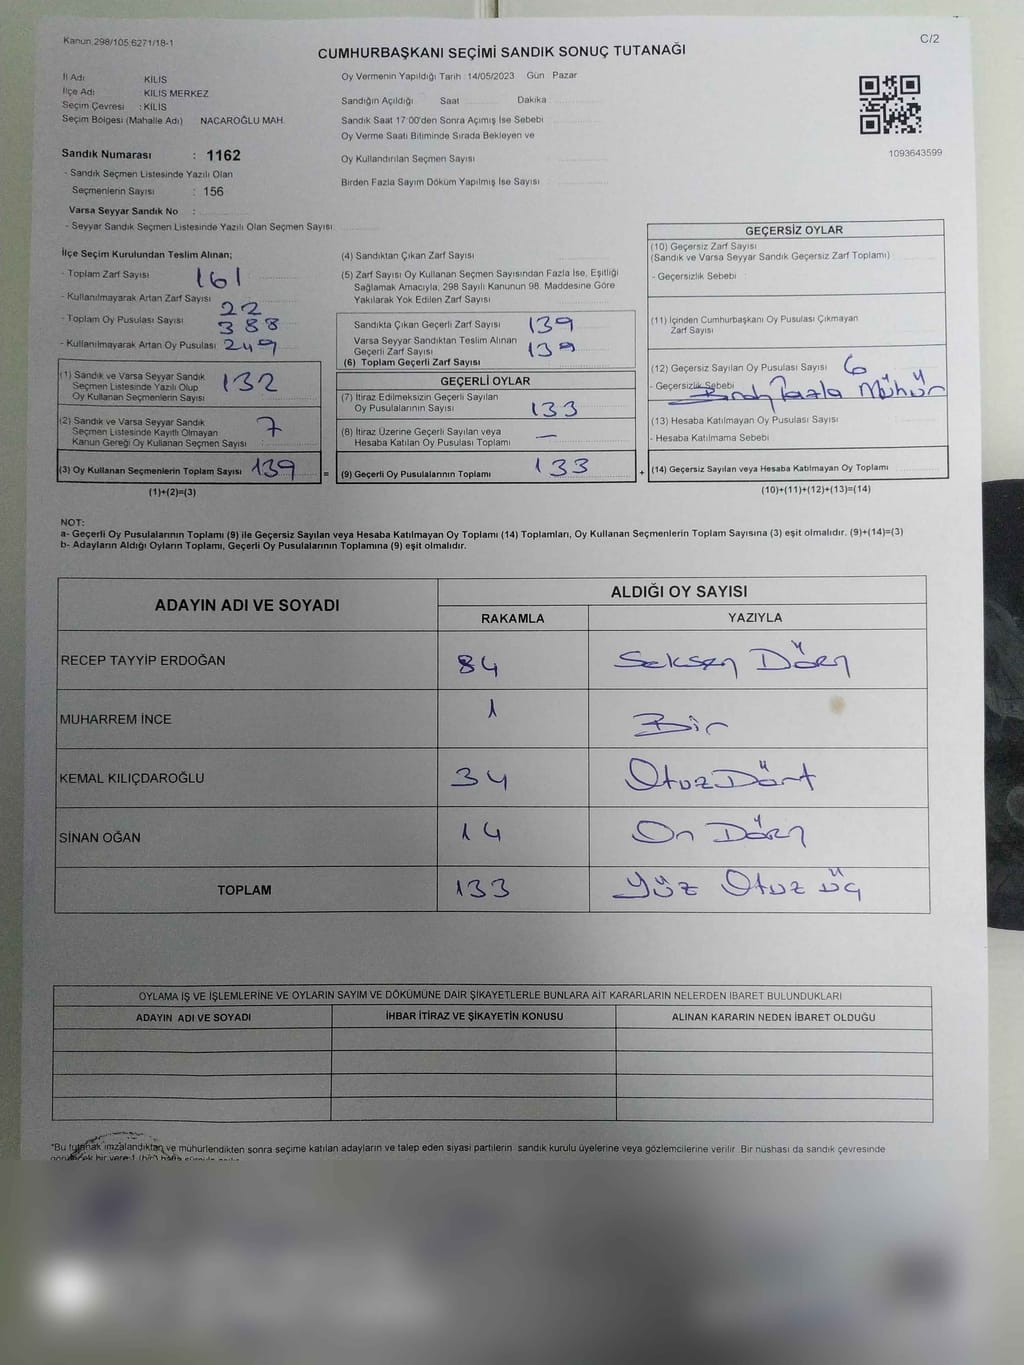 Kanun 298/105 6271/18-1
C/2
CUMHURBAŞKANI SEÇİMİ SANDIK SONUÇ TUTANAĞI
İl Adı KİLİS
İlçe Adı KİLİS MERKEZ
Seçim Çevresi : KİLİS
Seçim Bölgesi (Mahalle Adı) NACAROĞLU MAH.
Sandık Numarası : 1162
- Sandık Seçmen Listesinde Yazılı Olan
Seçmenlerin Sayısı : 156
Varsa Seyyar Sandık No :
- Seyyar Sandık Seçmen Listesinde Yazılı Olan Seçmen Sayısı
Oy Vermenin Yapıldığı Tarih :14/05/2023 Gün Pazar
Sandığın Açıldığı Saat Dakika
Sandık Saat 17:00'den Sonra Açımış İse Sebebi
Oy Verme Saati Bitiminde Sırada Bekleyen ve
Oy Kullandırılan Seçmen Sayısı
Birden Fazla Sayım Döküm Yapılmış İse Sayısı
1093643599
İlçe Seçim Kurulundan Teslim Alınan;
- Toplam Zarf Sayısı 161
- Kullanılmayarak Artan Zarf Sayısı 22
- Toplam Oy Pusulası Sayısı 388
- Kullanılmayarak Artan Oy Pusulası 249
(1) Sandık ve Varsa Seyyar Sandık
Seçmen Listesinde Yazılı Olup
Oy Kullanan Seçmenlerin Sayısı 132
(2) Sandık ve Varsa Seyyar Sandık
Seçmen Listesinde Kayıtlı Olmayan
Kanun Gereği Oy Kullanan Seçmen Sayısı 7
(3) Oy Kullanan Seçmenlerin Toplam Sayısı 139
(1)+(2)=(3)
(4) Sandıktan Çıkan Zarf Sayısı
(5) Zarf Sayısı Oy Kullanan Seçmen Sayısından Fazla İse, Eşitliği
Sağlamak Amacıyla, 298 Sayılı Kanunun 98. Maddesine Göre
Yakılarak Yok Edilen Zarf Sayısı
Sandıkta Çıkan Geçerli Zarf Sayısı 139
Varsa Seyyar Sandıktan Teslim Alınan
Geçerli Zarf Sayısı 139
(6) Toplam Geçerli Zarf Sayısı
GEÇERLİ OYLAR
(7) İtiraz Edilmeksizin Geçerli Sayılan
Oy Pusulalarının Sayısı 133
(8) İtiraz Üzerine Geçerli Sayılan veya
Hesaba Katılan Oy Pusulası Toplamı —
= (9) Geçerli Oy Pusulalarının Toplamı 133
GEÇERSİZ OYLAR
(10) Geçersiz Zarf Sayısı
(Sandık ve Varsa Seyyar Sandık Geçersiz Zarf Toplamı)
- Geçersizlik Sebebi :
(11) İçinden Cumhurbaşkanı Oy Pusulası Çıkmayan
Zarf Sayısı
(12) Geçersiz Sayılan Oy Pusulası Sayısı 6
- Geçersizlik Sebebi Fazla Mühür
(13) Hesaba Katılmayan Oy Pusulası Sayısı
- Hesaba Katılmama Sebebi
+ (14) Geçersiz Sayılan veya Hesaba Katılmayan Oy Toplamı
(10)+(11)+(12)+(13)=(14)
NOT:
a- Geçerli Oy Pusulalarının Toplamı (9) ile Geçersiz Sayılan veya Hesaba Katılmayan Oy Toplamı (14) Toplamları, Oy Kullanan Seçmenlerin Toplam Sayısına (3) eşit olmalıdır. (9)+(14)=(3)
b- Adayların Aldığı Oyların Toplamı, Geçerli Oy Pusulalarının Toplamına (9) eşit olmalıdır.
ADAYIN ADI VE SOYADI
ALDIĞI OY SAYISI
RAKAMLA YAZIYLA
RECEP TAYYİP ERDOĞAN 84 Seksen Dört
MUHARREM İNCE 1 Bir
KEMAL KILIÇDAROĞLU 34 Otuz Dört
SİNAN OĞAN 14 On Dört
TOPLAM 133 Yüz Otuz üç
OYLAMA İŞ VE İŞLEMLERİNE VE OYLARIN SAYIM VE DÖKÜMÜNE DAİR ŞİKAYETLERLE BUNLARA AİT KARARLARIN NELERDEN İBARET BULUNDUKLARI
ADAYIN ADI VE SOYADI İHBAR İTİRAZ VE ŞİKAYETİN KONUSU ALINAN KARARIN NEDEN İBARET OLDUĞU
*Bu tutanak imzalandıktan ve mühürlendikten sonra seçime katılan adayların ve talep eden siyasi partilerin sandık kurulu üyelerine veya gözlemcilerine verilir. Bir nüshası da sandık çevresinde